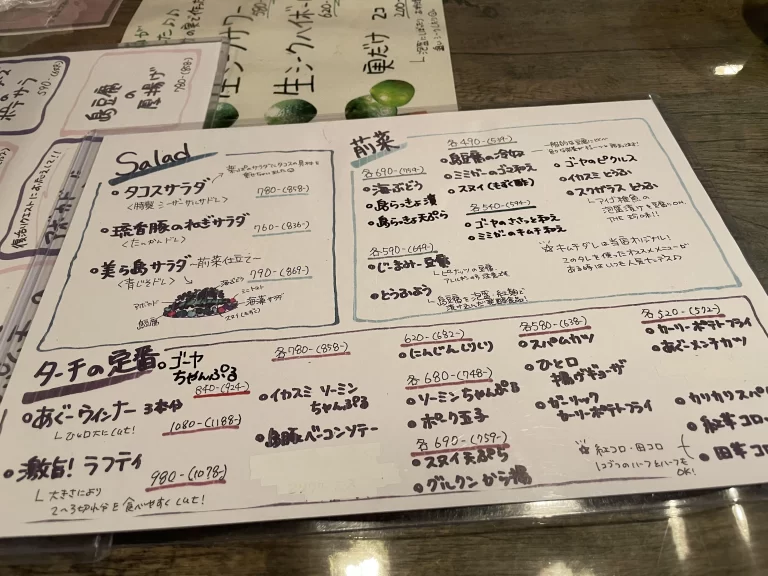 生シークワーサー
580-
生シークハイボール
620-
実だけ 2コ
200-
590-(649-)
島豆腐
の
厚揚げ
780-(858-)
Salad
・タコスサラダ
<特製シーザーサルサドレ>
780-(858-)
・琉香豚のねぎサラダ
<たんかんドレ>
760-(836-)
・美ら島サラダ -前菜仕立て-
<青じそドレ>
790-(869-)
海ぶどう
ミニトマト
アボカド
海藻サラダ
島豆腐
スヌイ(もずく)
前菜
各690-(759-)
・海ぶどう
・島らっきょ漬
・島らっきょ天ぷら
各590-(649-)
・じーまみー豆腐
・とうふよう
各490-(539-)
・島豆腐の冷奴
・ミミガーのゴマ和え
・スヌイ(もずく酢)
各540-(594-)
・ゴーヤのささっと和え
・ミミガーのキムチ和え
・ゴーヤのピクルス
・イカスミとうふ
・スクガラスとうふ
☆キムチダレは当店オリジナル!
このタレを使ったオススメメニューが
ある時はいつも人気デスヨ
ターチの定番
・ゴーヤ
ちゃんぷる
840-(924-)
・あぐーウィンナー 3本分
└ひと口大にcut!
1080-(1188-)
・激旨!ラフティ
980-(1078-)
└大きさにより
2〜3切れ分を食べやすくcut!
各780-(858-)
・イカスミソーミン
ちゃんぷる
・島豚ベーコンソテー
620-(682-)
・にんじんしりしり
各680-(748-)
・ソーミンちゃんぷる
・ポーク玉子
各690-(759-)
・スヌイ天ぷら
・グルクンから揚
各580-(638-)
・スパムカツ
・ひと口
揚げギョーザ
・ガーリック
カーリーポテトフライ
各520-(572-)
・カーリーポテトフライ
・あぐーメンチカツ
・カリカリスパ
・紅芋コロ
・田芋コロ
☆紅コロ・田コロ
1コずつのハーフ&ハーフも
OK!